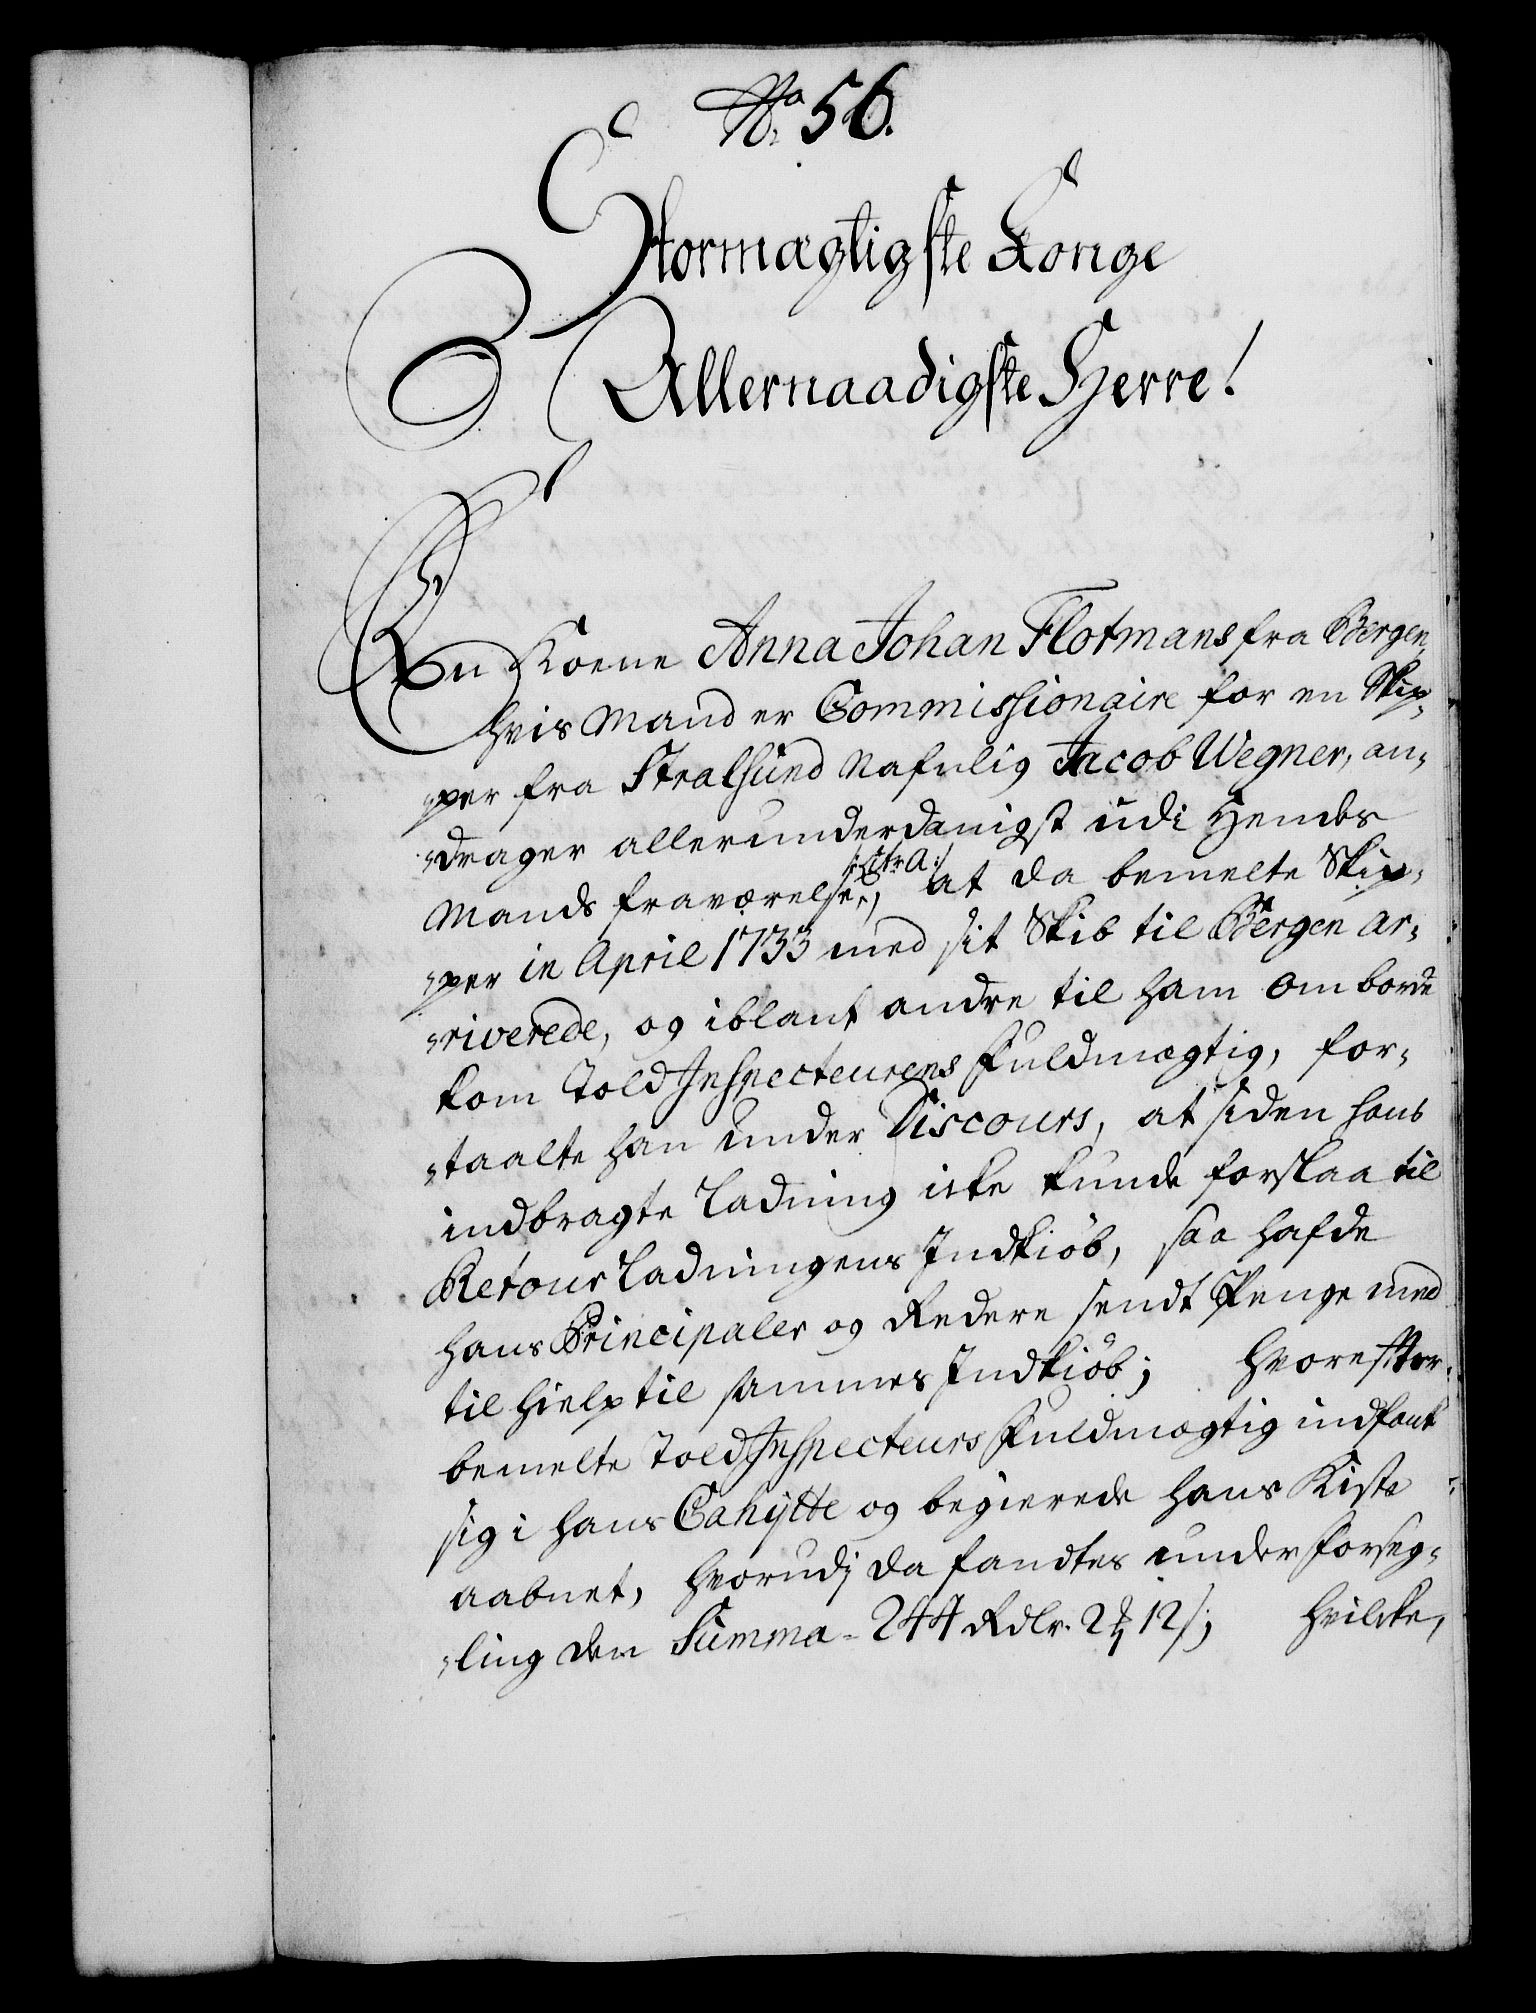 No 56.
Stormægtigste Konge
Allernaadigste Herre!
En Kone Anna Johan Flotmans fra Bergen,
hvis Mand er Commissionaire for en Skip-
per fra Stralsund Nafnlig Jacob Wegner, an-
drager allerunderdanigst udi Hendes
/: Litr A :/
Mands fraværelse, at da bemelte Skip-
per in April 1733 med sit Skib til Bergen ar-
riverede, og iblant andre til ham om borde
kom Told Inspecteurens Fuldmægtig, for-
taalte han under Discours, at siden hans
indbragte Ladning icke kunde forslaa til
Retour Ladningens Indkiöb, saa hafde
hans Principaler og Redere sendt Penge med
til hielp til sammes Indkiöb; Hvorefter
bemelte Told Inspecteurs Fuldmægtig indfant
sig i hans Cahytte og begierede hans Kiste
aabnet, hvorudj da fandtes under forseg-
ling den Summa - 244 Rdlr. 2 ꝳ 12 s; Hvilcke,